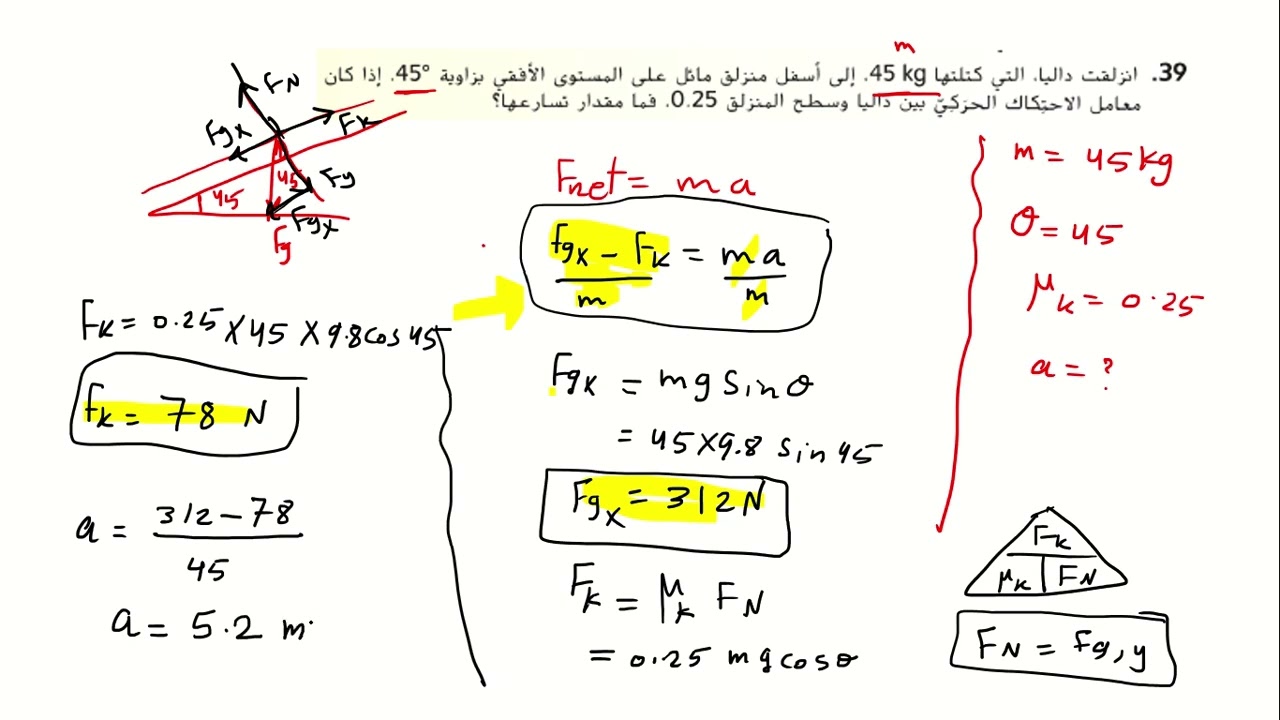 m
39. انزلقت داليا، التي كتلتها 45 kg، إلى أسفل منزلق مائل على المستوى الأفقي بزاوية 45°. إذا كان
معامل الاحتكاك الحركيّ بين داليا وسطح المنزلق 0.25، فما مقدار تسارعها؟
FN
Fk
Fgx
45
45
Fy
Fgx
Fg
m = 45kg
θ = 45
μk = 0.25
a = ?
Fnet = ma
Fgx - Fk = ma
m m
Fgx = mg sinθ
= 45×9.8 sin 45
Fgx = 312N
Fk = μk FN
= 0.25 mg cosθ
Fk = 0.25 × 45 × 9.8cos 45
fk = 78 N
a = 312 - 78
45
a = 5.2 m
Fk
μk FN
FN = fg,y